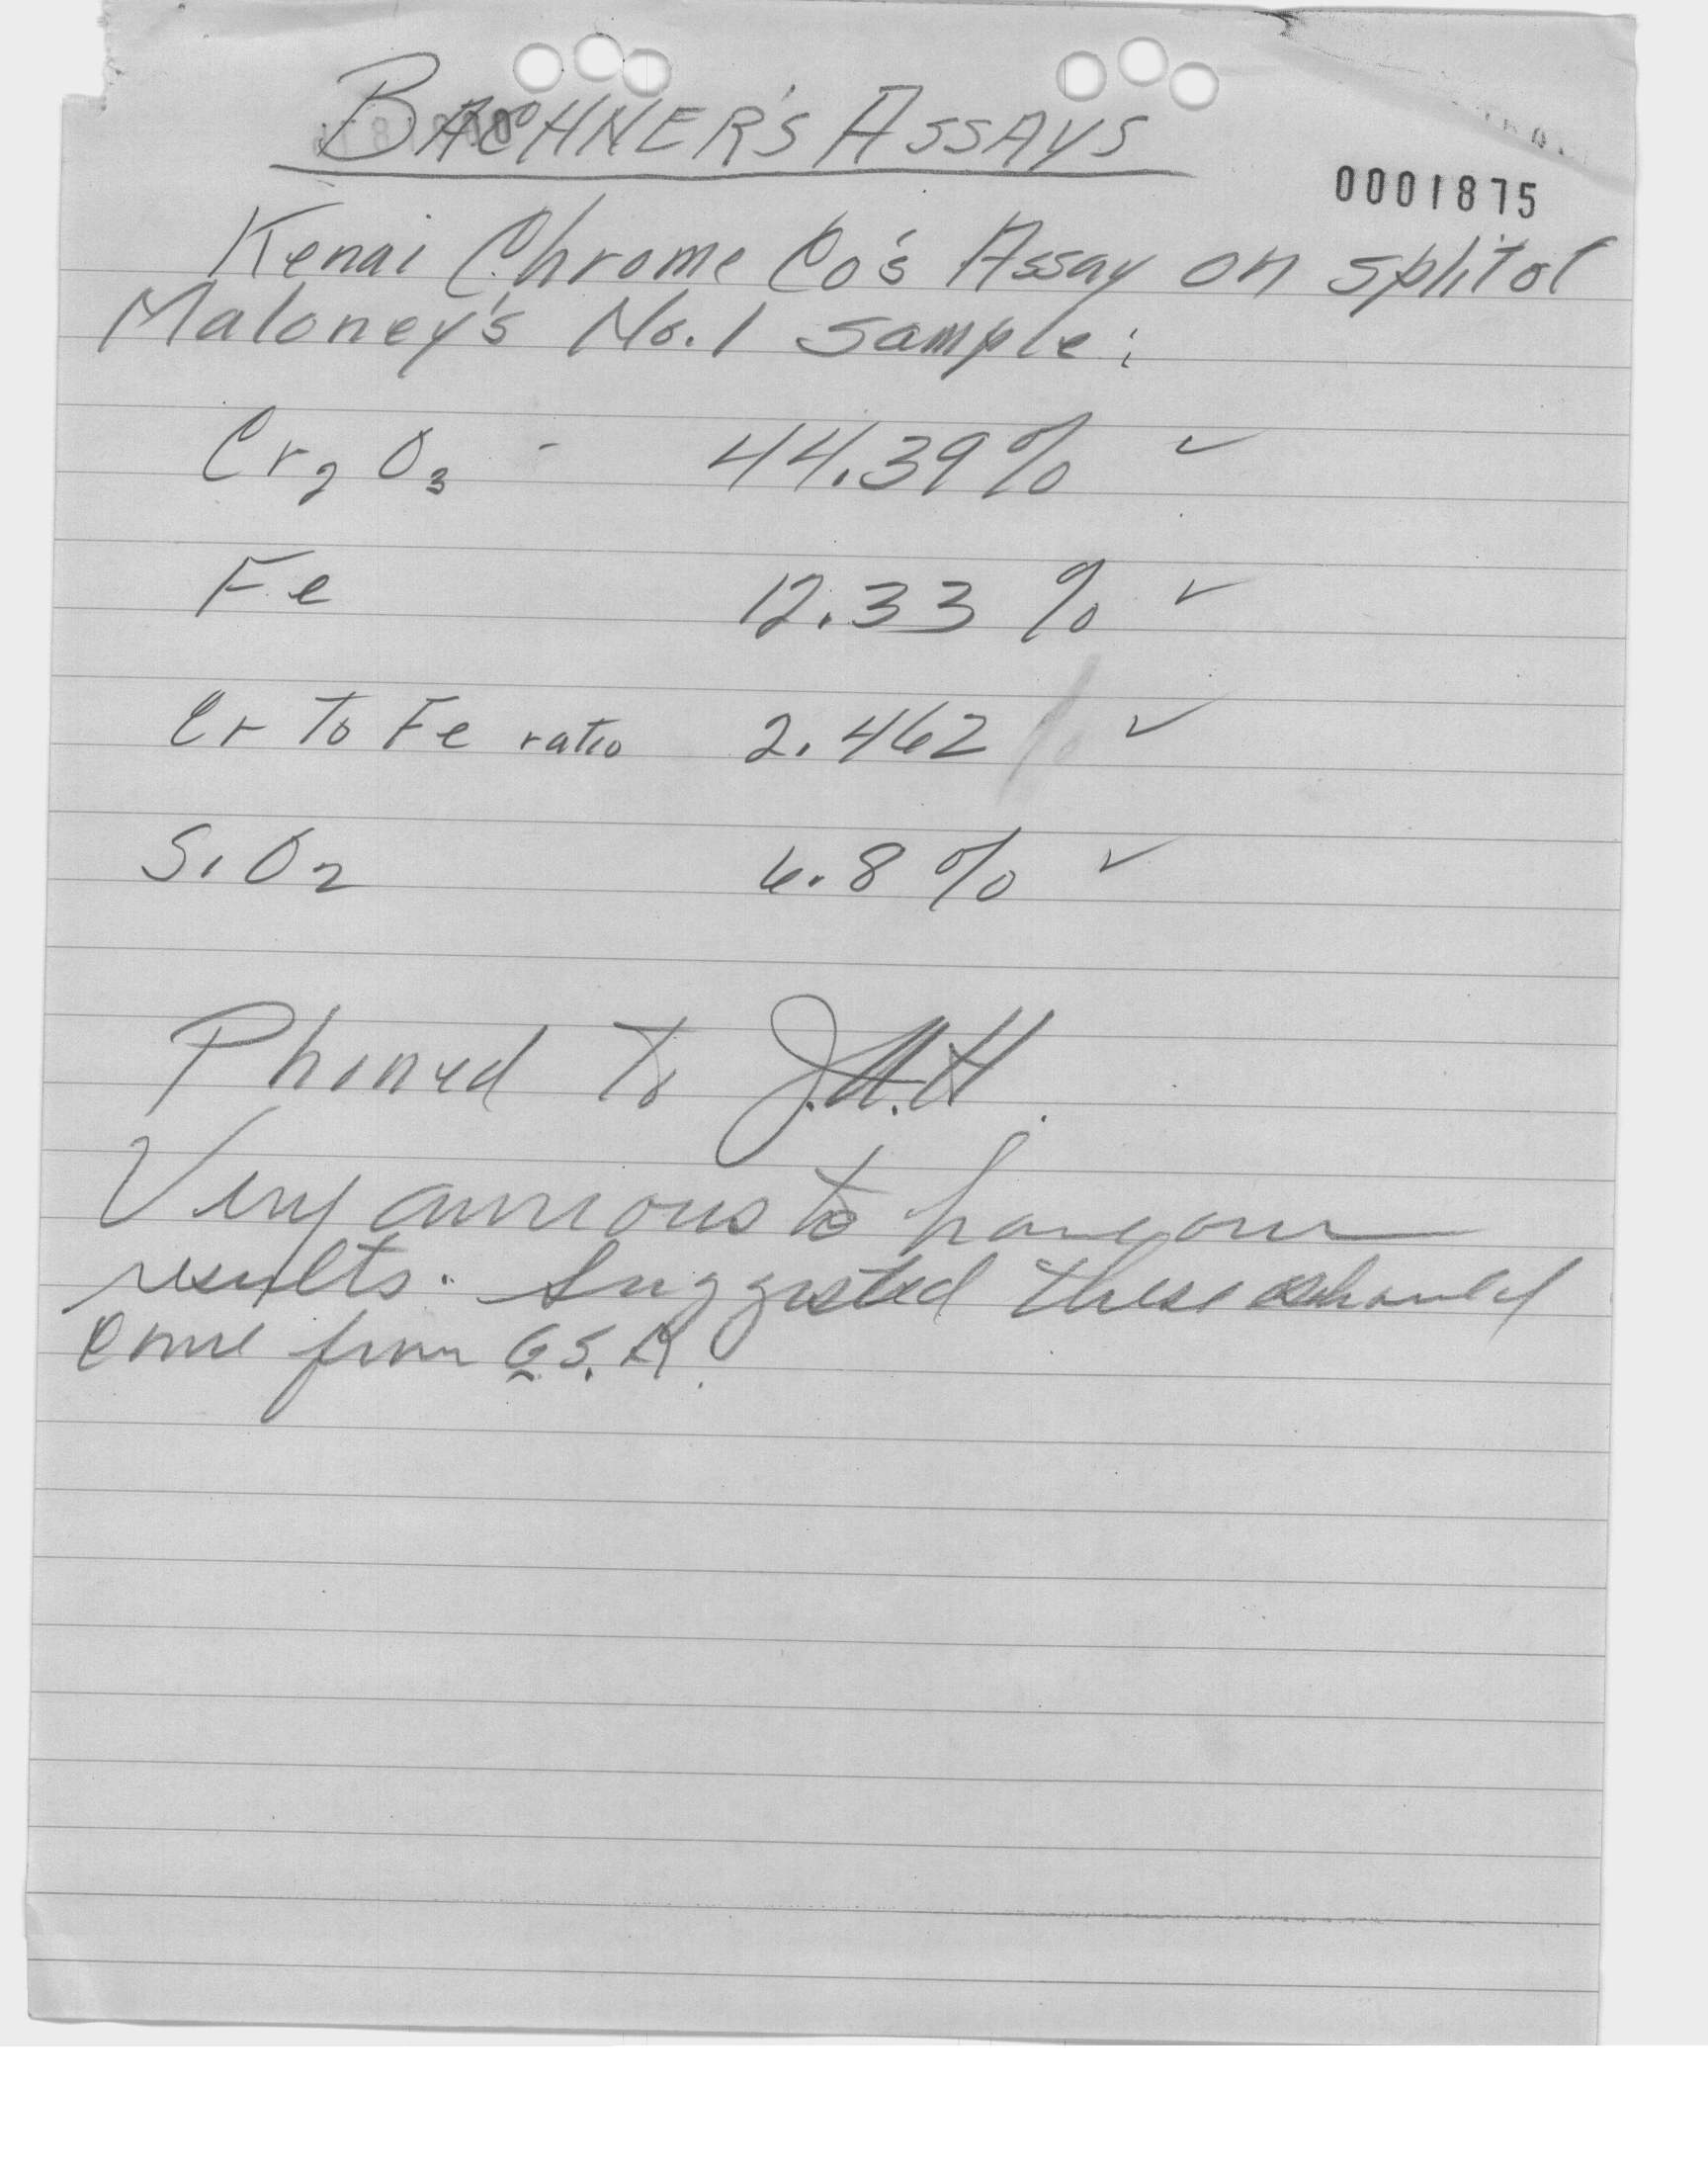 BACHNER'S ASSAYS
0001875
Kenai Chrome Co's Assay on split of
Maloney's No. 1 sample:
Cr2O3 - 44.39% ✓
Fe 12.33 % ✓
Cr To Fe ratio 2.462 ✓
SiO2 6.8% ✓
Phoned to J.A.H.
Very anxious to have our
results. Suggested these should
come from G.S.A.